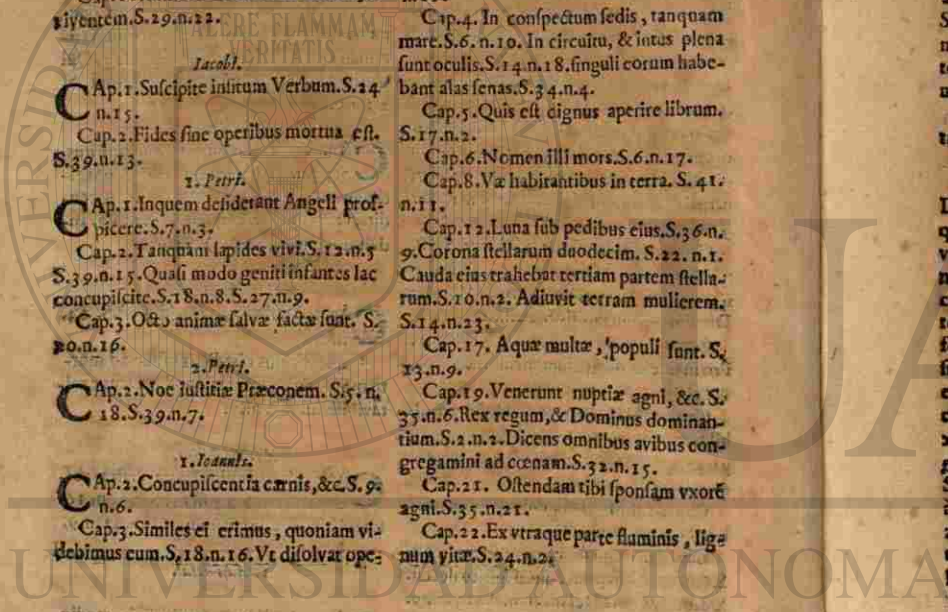 viventem.S.29.n.22.
Iacobi.
CAp.1.Suscipite insitum Verbum.S.24
n.15.
Cap.2.Fides sine operibus mortua est.
S.39.n.13.
1. Petri.
CAp.1.Inquem desiderant Angeli pros-
picere.S.7.n.3.
Cap.2.Tanquàm lapides vivi.S.12.n.5
S.39.n.15.Quasi modo geniti infantes lac
concupiscite.S.18.n.8.S.27.n.9.
Cap.3.Octo animæ salvæ factæ sunt. S.
20.n.16.
2.Petri.
CAp.2.Noe iustitiæ Præconem. S.5.n.
18.S.39.n.7.
1.Ioannis.
CAp.2.Concupiscentia carnis,&c.S.9.
n.6.
Cap.3.Similes ei erimus, quoniam vi-
debimus eum.S.18.n.16.Vt disolvat ope-
Cap.4. In conspectum sedis, tanquam
mare.S.6. n.10. In circuitu, & intus plena
sunt oculis.S.14.n.18.singuli eorum habe-
bant alas senas.S.34.n.4.
Cap.5.Quis est dignus aperire librum.
S.17.n.2.
Cap.6.Nomen illi mors.S.6.n.17.
Cap.8.Væ habitantibus in terra. S.41.
n.11.
Cap.12.Luna sub pedibus eius.S.36.n.
9.Corona stellarum duodecim. S.22. n.1.
Cauda eius trahebat tertiam partem stella-
rum.S.10.n.2. Adiuvit terram mulierem.
S.14.n.23.
Cap.17. Aquæ multæ, populi sunt. S.
13.n.9.
Cap.19.Venerunt nuptiæ agni, &c. S.
35.n.6.Rex regum,& Dominus dominan-
tium.S.2.n.2.Dicens omnibus avibus con-
gregamini ad cœnam.S.32.n.15.
Cap.21. Ostendam tibi sponsam vxorē
agni.S.35.n.21.
Cap.22.Ex vtraque parte fluminis, lig-
num vitæ.S.24.n.2.
ALERE FLAMMAM
VERITATIS
UNIVERSIDAD AUTÓNOMA